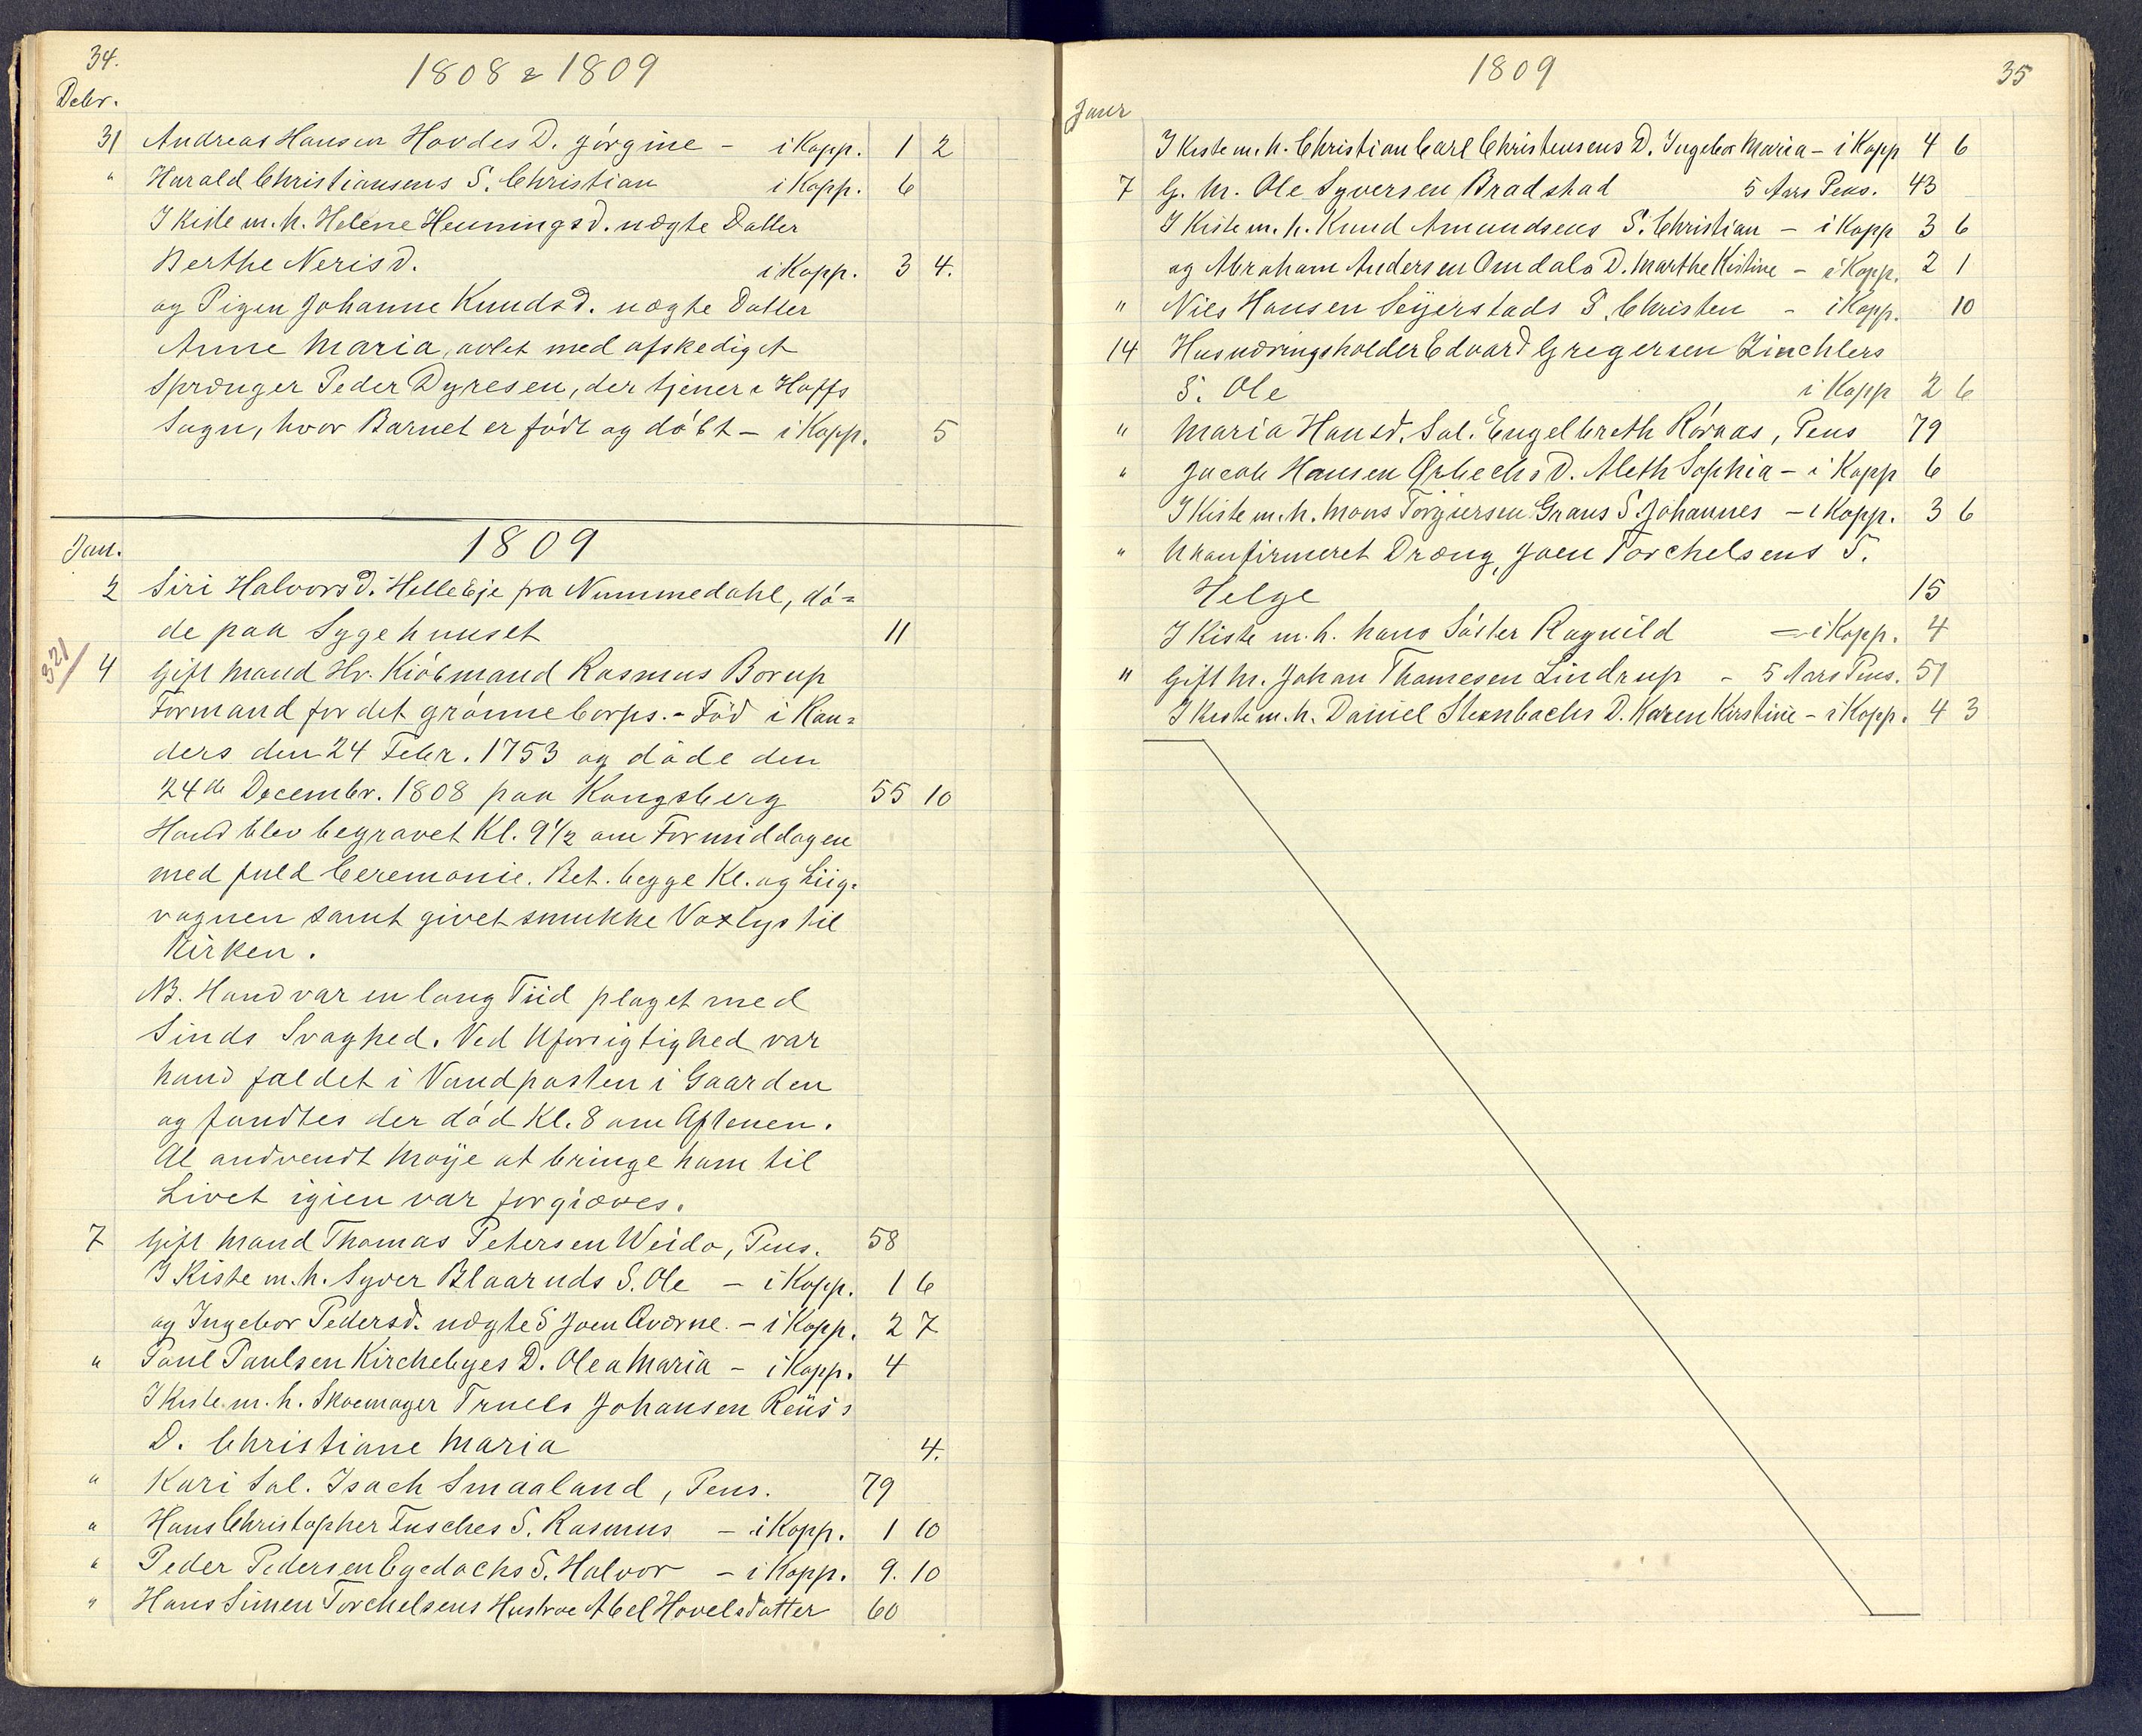 34.
1808 & 1809
Debr.
31 Andreas Hansen Hovdes D. Jörgine - i Kopp. 1 2
" Harald Christiansens S. Christian i Kopp. 6
I Kiste m. h. Helene Henningsd. uægte Datter
Berthe Nerisd. i Kopp. 3 4.
og Pigen Johanne Knudsd. uægte Datter
Anne Maria, avlet med afskediget
Sprænger Peder Dyresen, der tjener i Hoffs
Sogn, hvor Barnet er födt og döbt - i Kopp. 5
1809
Jan.
2 Siri Halvorsd. Helle Eje fra Nummedahl, dö=
de paa Sygehuuset 11
321/ 4 Gift Mand Hr. Kiöbmand Rasmus Borup
Formand for det grönne Corps. - Föd i Ran=
ders den 24 Febr. 1753 og döde den
24de Decembr. 1808 paa Kongsberg 55 10
Hand blev begravet Kl. 9 1/2 om Formiddagen
med fuld Ceremonie. Bet. begge Kl. og Liig=
vognen samt givet smukke Voxlys til
Kirken.
NB. Hand var en lang Tiid plaget med
Sinds Svaghed. Ved Uforsigtighed var
hand faldet i Vandposten i Gaarden
og fandtes der död Kl. 8 om Aftenen.
Al andvendt Möije at bringe ham til
Livet igien var forgiæves.
7 Gift Mand Thomas Petersen Weido, Pens. 58
I Kiste m. h. Syver Blaaruds S. Ole - i Kopp. 1 6
og Ingebor Pedersd. uægte S Joen Qværne. - i Kopp. 2 7
" Poul Paulsen Kirchebyes D. Olea Maria - i Kopp. 4
I Kiste m. h. Skoemager Truels Johansen Reüss
D. Christiane Maria 4.
" Kari Sal. Isach Smaaland, Pens. 79
" Hans Christopher Fusches S. Rasmus - i Kopp. 1 10
" Peder Pedersen Egedachs S. Halvor - i Kopp. 9. 10
" Hans Simen Torchelsens Hustroe Abel Hovelsdatter 60
1809
35
Janr
I Kiste m. h. Christian Carl Christensens D. Ingebor Maria - i Kopp 4 6
7 G. M. Ole Syversen Bradstad 5 Aars Pens. 43
I Kiste m. h. Knud Amundsens S. Christian - i Kopp 3 6
og Abraham Andersen Omdals D. Marthe Kistine - i Kopp. 2 1
" Niels Hansen Seijerstads S. Christen - i Kopp. 10
14 Husnæringsholder Edvard Gregersen Zinchlers
S. Ole i Kopp 2 6
" Maria Hansd. Sal. Engelbreth Röraas, Pens 79
" Jacob Hansen Ørbechs D. Aleth Sophia - i Kopp 6
I Kiste m. h. Mons Törgiersen Graus S. Johannes - i Kopp. 3 6
" Ukonfirmeret Dræng, Joen Torchelsens S.
Helge 15
I Kiste m. h. hans Söster Ragnild - i Kopp. 4
" Gift M. Johan Thomesen Lindrup - 5 Aars Pens. 51
I Kiste m. h. Daniel Steenbachs D. Karen Kirstine - i Kopp. 4 3